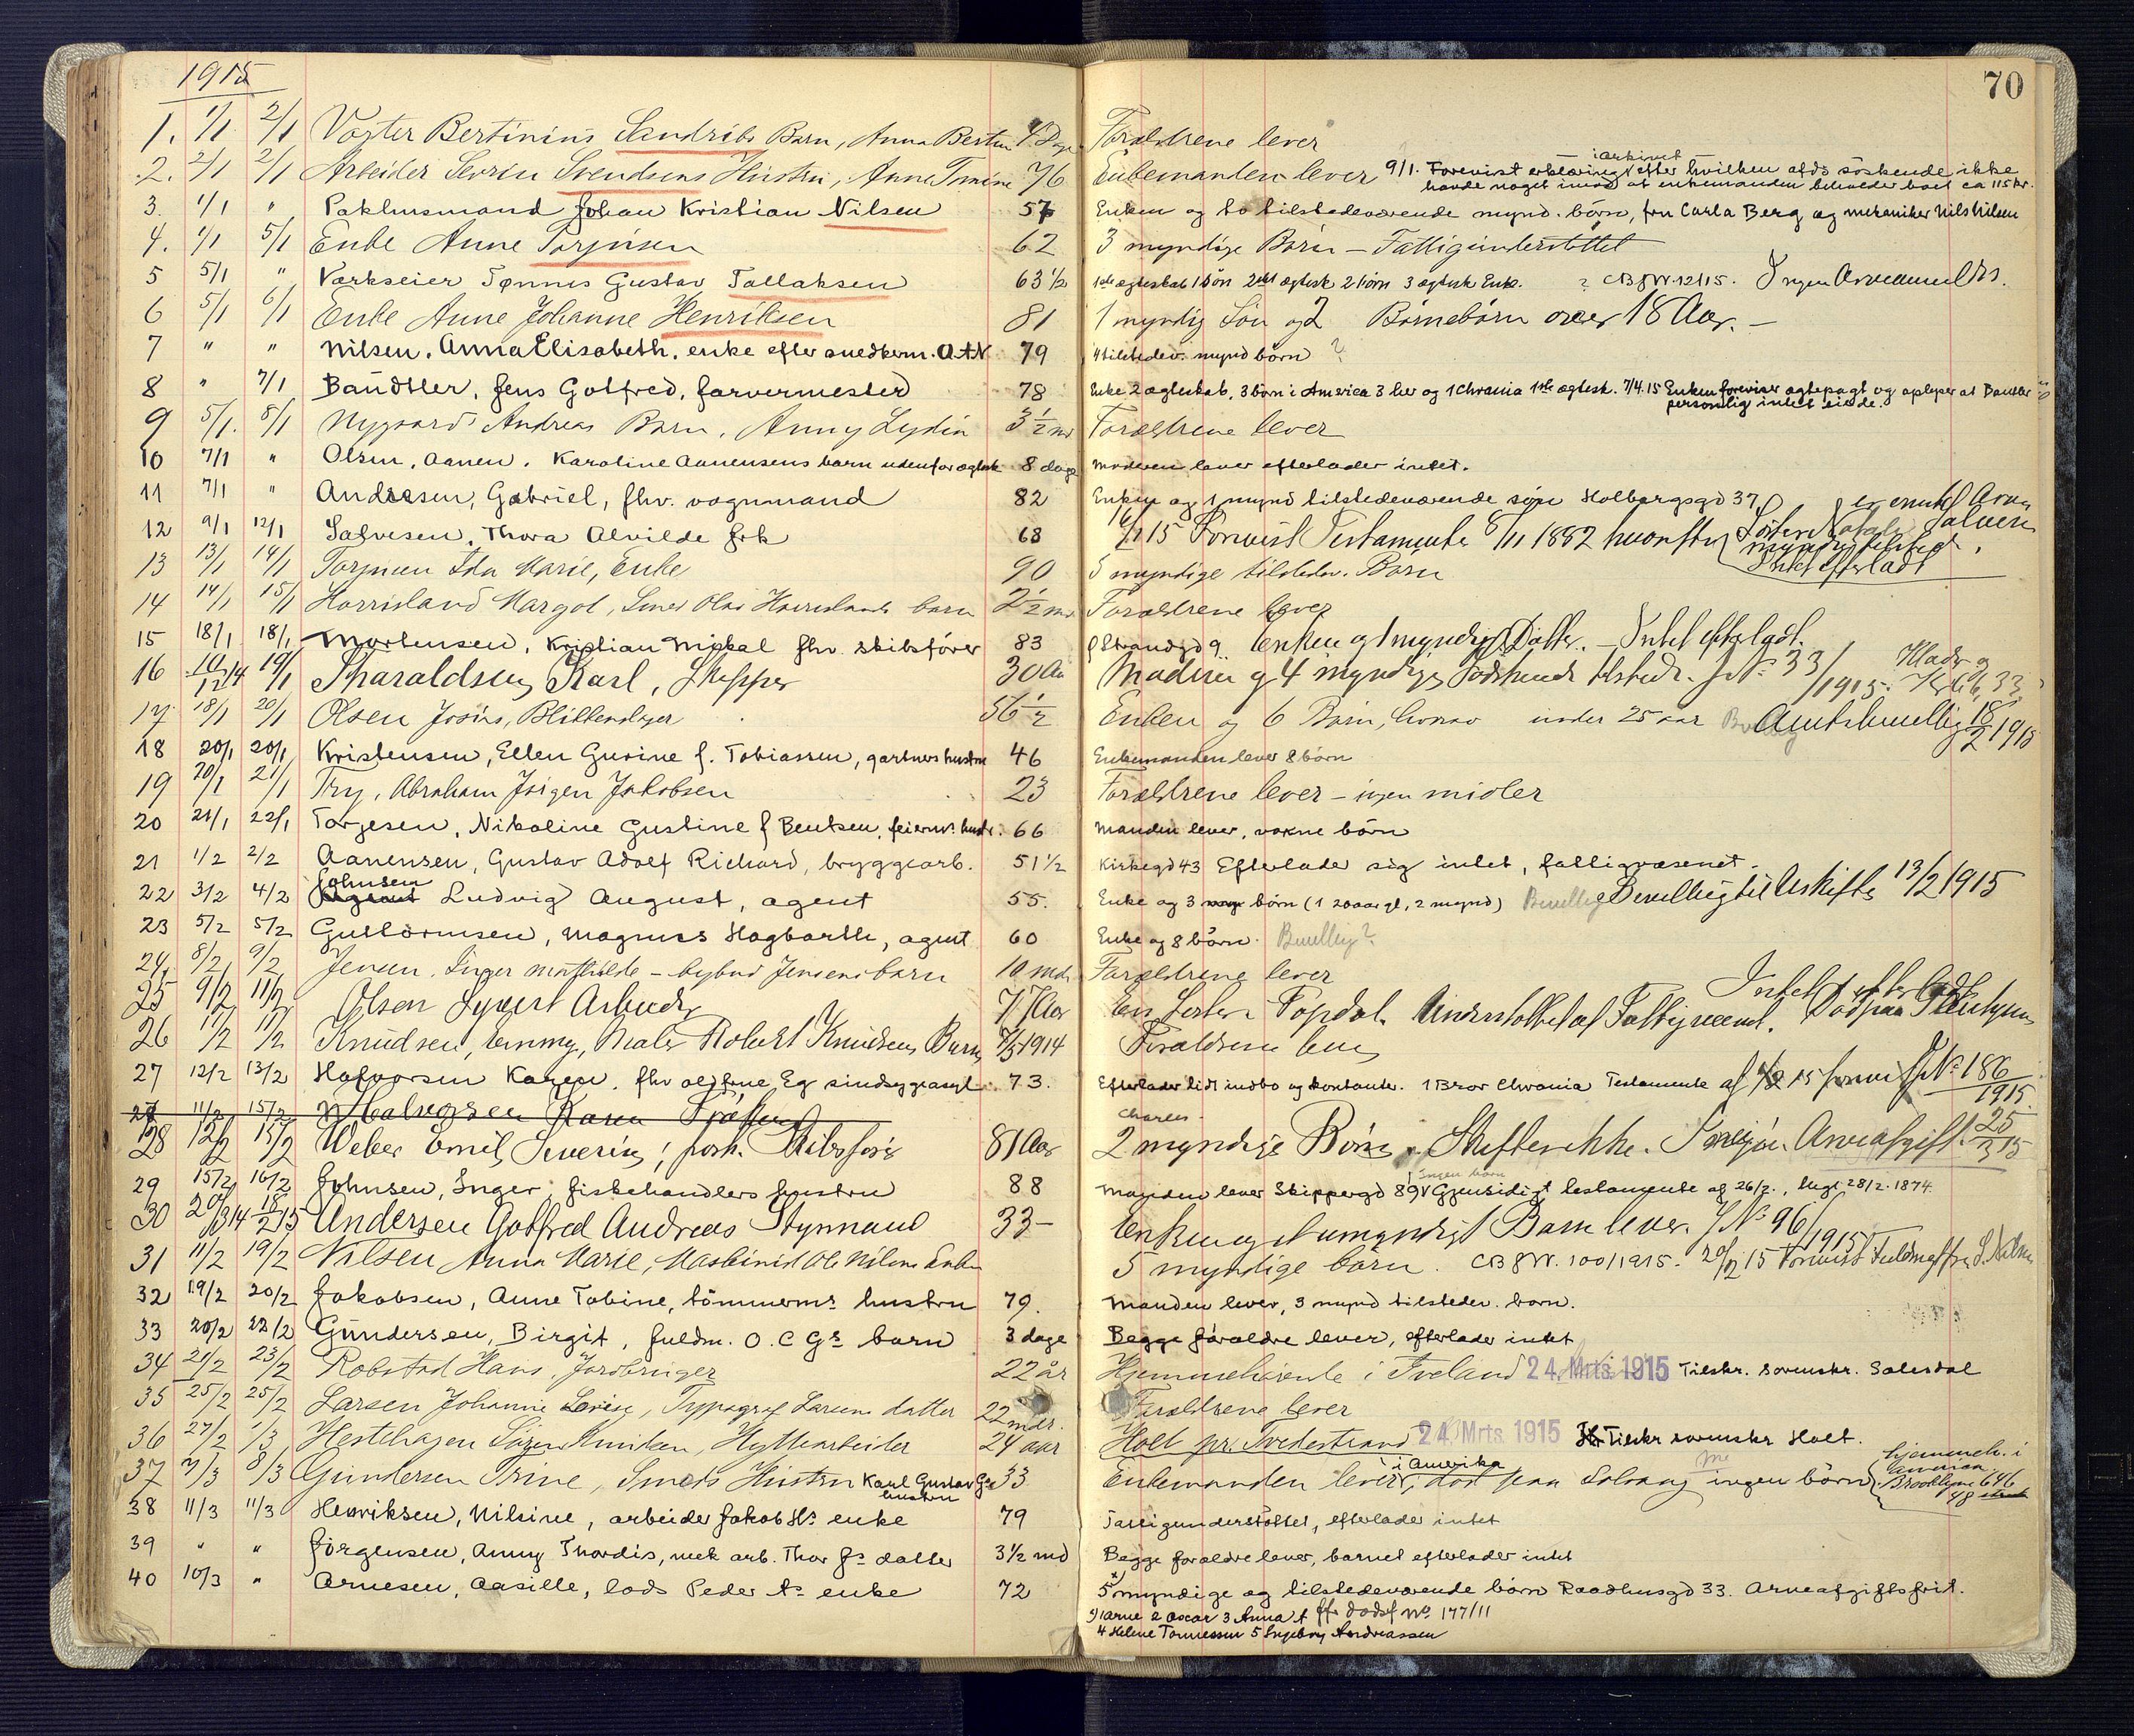 70
1915
1. 1/1 2/1 Vogter Bertinius Sandribs Barn, Anna Bertin 4 Dage Forældrene lever
2. 2/1 2/1 Arbeider Sevrin Svendsens Hustru, Anne Tomine 76 Enkemanden lever 9/1. Forevist erklæring i arkivet efter hvilken afds søskende ikke
havde noget imod at enkemanden beholder boet ca 115 kr.
3. 1/1 " Pakhusmand Johan Kristian Nilsen 57 Enken og to tilstedeværende mynd. börn, fru Carla Berg og mekaniker Nils Nilsen
4. 1/1 5/1 Enke Anne Torjusen 62 3 myndige Börn – Fattigunderstöttet
5 5/1 " Værkseier Tønnes Gustav Tallaksen 63 1/2 1ste ægteskab 1 börn 2det ægtesk 2 börn 3 ægtesk Enke. ? CB JNr. 12/15. Ingen Arveanmeldes.
6 5/1 6/1 Enke Anne Johanne Henriksen 81 1 myndig Sön og 2 Börnebörn over 18 Aar. –
7 " " Nilsen, Anna Elisabeth, enke efter snedkerm. A. N. 79 4 tilstedev. mynd börn ?
8 " 7/1 Baudtler, Jens Gotfred, farvermester 78 Enke 2 ægteskab, 3 börn i America 3 her og 1 Chrania 1ste ægtesk. 7/4.15 Enken foreviser ægtepagt og oplyser at Baudtler
personlig intet eiede.
9 5/1. 8/1 Nygaard Andreas Barn, Anny Lydia 3 1/2 md Forældrene lever
10 7/1 " Olsen, Aanen. Karoline Aanensens barn udenfor ægtesk 8 dage Moderen lever efterlader intet.
11 7/1 " Andresen, Gabriel, fhv. vognmand 82 Enken og 1 mynd tilstedeværende sön Holbergsgd 37
12 9/1 12/1 Salvesen, Thora Alvilde frk 68 15 Forevist Testamente 8/11 1882 hvorefter Söster Salvesen
myndig tilsted.
Intet efterladt
13 13/1 14/1 Torjusen Ida Marie, Enke 90 5 myndige tilstedev. Börn
14 14/1 15/1 Harrisland Margot, Smed Olai Harrislands barn 2 1/2 md Forældrene lever
15 18/1 18/1 Mortensen, Kristian Mikal fhv. skibsförer 83 Strandgd 9 Enken og 1 myndig Datter. – Intet efterladt.
16 10/12 14 19/1 Tharaldsen Karl, Skipper 30 Aar Moderen og 4 myndige Södskende tilstede. J. No 33/1915.
17 18/1 20/1 Olsen Josias, Blikkenslager 56 1/2 Enken og 6 Börn, hvorav under 25 aar Amtsbevilling 18/2 1915
18 20/1 20/1 Kristensen, Ellen Gurine f. Tobiassen, gartners hustru 46 Enkemanden lever 8 börn
19 20/1 21/1 Try, Abraham Jörgen Jakobsen 23 Forældrene lever – ingen midler
20 21/1 22/1 Torjesen, Nikoline Gustine f Bentsen, feierms. hustr. 66 Manden lever, voxne börn
21 1/2 2/2 Aanensen, Gustav Adolf Richard, bryggearb. 51 1/2 Kirkegd 43 Efterlader sig intet, fattigvæsenet.
22 3/2 4/2 Johnsen Ludvig August, agent 55. Enke og 3 börn (1 20 aar gl, 2 mynd) Bevilling Bevilling til Uskifte 13/2 1915
23 5/2 5/2 Guttormsen, Magnus Hagbarth, agent 60 Enke og 8 börn. Bevilling?
24. 8/2 9/2 Jensen, Inger Mathilde – bybud Jensens barn 10 mdr Forældrene lever
25 9/2 11/2 Olsen Syvert Arbeider 77 Aar En Søster i Topdal. Understöttet af Fattigvæsenet. Intet efterladt.
26 11/2 11/2 Knudsen, Emmy, Maler Robert Knudsens Barn 7/5 1914 Forældrene lever
27 12/2 13/2 Halvorsen Karen. fhv oldfrue Eg sindsygeasyl. 73. Efterlader lidt indbo og kontanter. 1 Bror Chrania Testamente af 15 J No 186/1915.
27 11/2 15/2 Halvorsen Karen Fröken
28 12/2 15/2 Weber Emil Severin, forh. Skibsförer 81 Aar 2 myndige Börn. Charles Skifter ikke. Arveafgift 25/3 15
29 15/2 16/2 Johnsen, Inger, fiskehandlers hustru 88 Manden lever Skippergd 89 Ingen börn Gjensidigt testamente af 26/2., thgl 28/2. 1874.
30 20/3 14 18/2 15 Andersen Gotfred Andreas Styrmand 33 – Enken og 1 umyndigt Barn lever. J No 96/1915
31 11/2 19/2 Nilsen Anna Marie, Maskinist Ole Nilsens Enke 5 myndige börn. CB JNr. 100/1915. 20/2 15 Forevist Fuldmagt fra S. Nilsen
32 19/2 20/2 Jakobsen, Anne Tobine, tömmerms. hustru 79. Manden lever, 3 mynd tilstedev. barn.
33 20/2 22/2 Gundersen, Birgit, fuldm. O. C Gs barn 3 dage Begge foraldre lever, efterlader intet
34 21/2 23/2 Robstad Hans, Jordbruger 22 år Hjemmehörende i Iveland 24. Mrts. 1915 Tilskr. sorenskr. Sætesdal
35 25/2 25/2 Larsen Johanne Lovise, Typograf Larsens datter 22 mdr. Forældrene lever
36 27/2 1/3 Hestehagen Sören Knudsen, Hyttearbeider 24 aar Holt pr. Tvedestrand 24 Mrts 1915 Tilskr sorenskr Holt.
37 7/3 8/3 Gundersen Trine, Smeds Hustru Karl Gustav Gs hustru 33 Enkemanden lever i Amerika, död paa Solvang ingen börn hjemmeh. i
Amerika
Brooklyne 646
48
38 11/3 11/3 Henriksen, Nilsine, arbeider Jakob Hs enke 79 Fattigunderstöttet, efterlader intet
39 " " Jörgensen, Anny Thordis, mek arb. Thor Js datter 3 1/2 md Begge foraldre lever, barnet efterlader intet
40 10/3 " Arnesen, Aasille, lods Peder As enke 72 5 myndige og tilstedeværende börn Raadhusgd 33. Arveafgiftsfrit.
1 Arne 2 Oscar 3 Anna f ffr dödsf No. 177/11
4 Helene Tönnessen 5 Ingeborg Andreassen